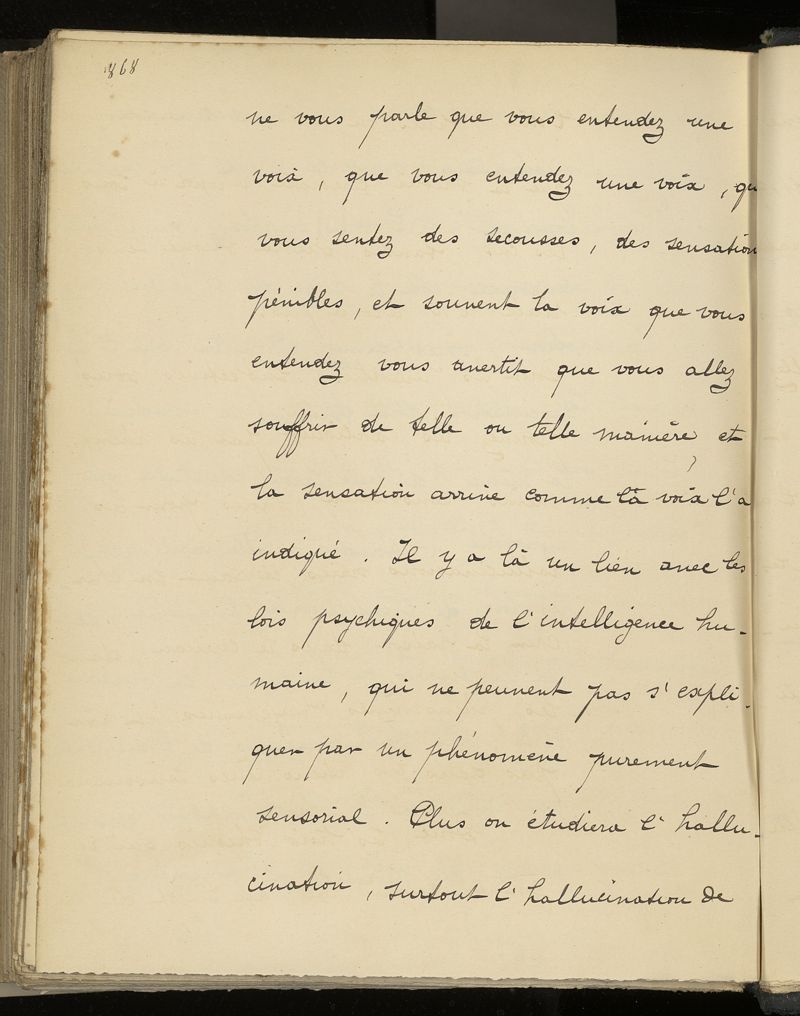 868
ne vous parle que vous entendez une
voix, que vous entendez une voix, qu
vous sentez des secousses, des sensation
pénibles, et souvent la voix que vous
entendez vous avertit que vous allez
souffrir de telle ou telle manière, et
la sensation arrive comme la voix l'a
indiqué. Il y a là un lien avec les
lois psychiques de l'intelligence hu-
maine, qui ne peuvent pas s'expli-
quer par un phénomène purement
sensorial. Plus on étudiera l'hallu-
cination, surtout l'hallucination de